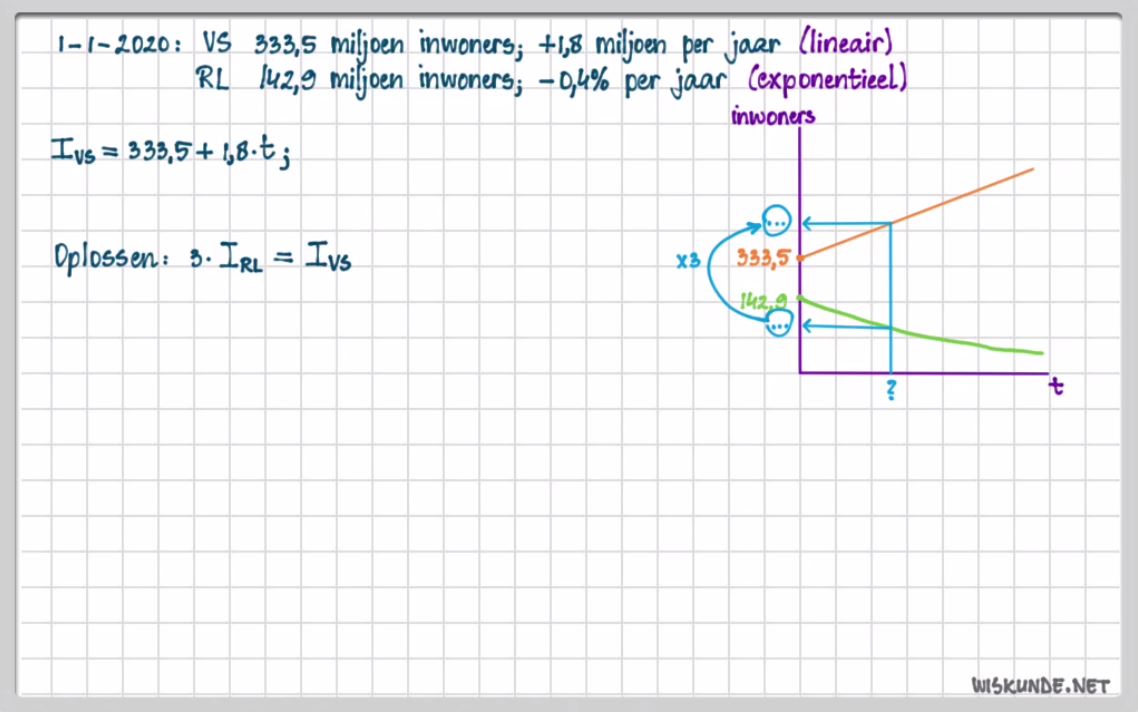 1-1-2020: VS 333,5 miljoen inwoners; +1,8 miljoen per jaar (lineair)
RL 142,9 miljoen inwoners; -0,4% per jaar (exponentieel)
inwoners
I_VS = 333,5 + 1,8·t ;
...
Oplossen: 3· I_RL = I_VS
x3
333,5
142,9
...
?
t
WISKUNDE.NET